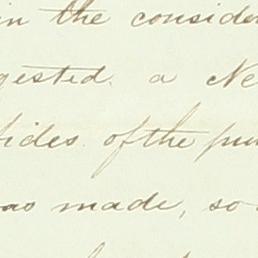 in the consider
gested. a Ne
fides of the pu
as made, so